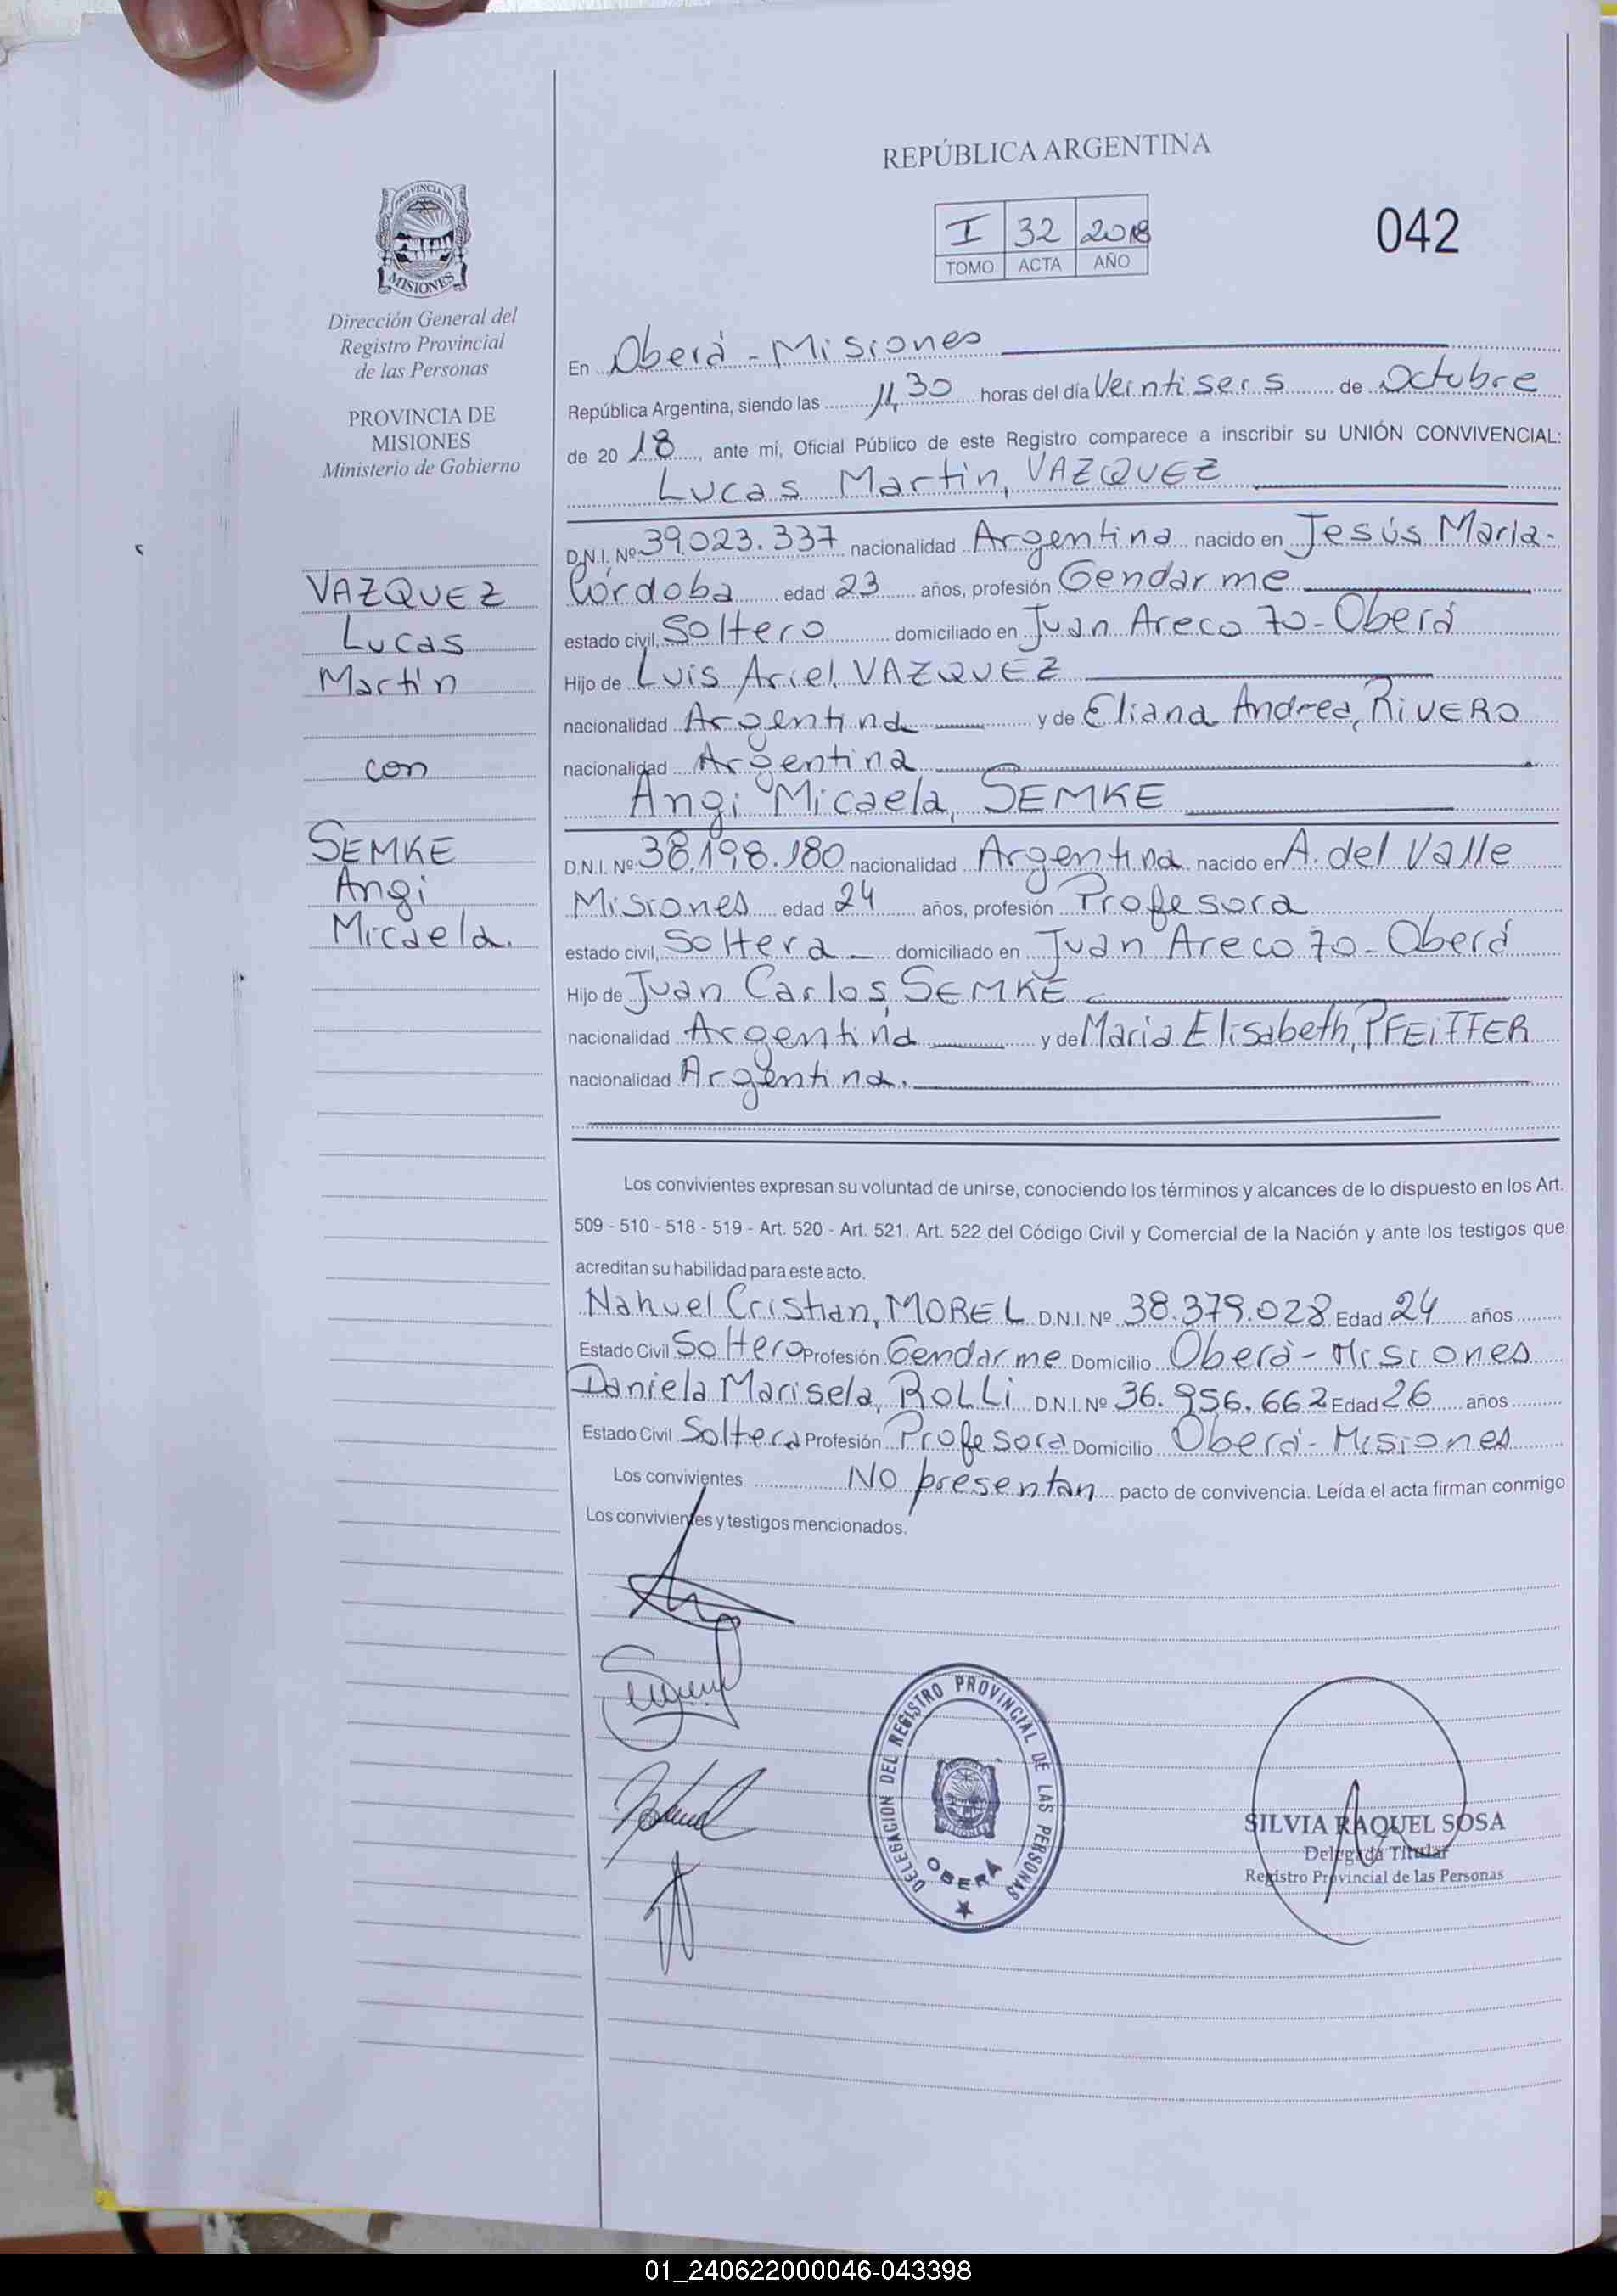 REPÚBLICA ARGENTINA
I 32 2018
TOMO ACTA AÑO
042
PROVINCIA DE
MISIONES
Dirección General del
Registro Provincial
de las Personas
PROVINCIA DE
MISIONES
Ministerio de Gobierno
VAZQUEZ
Lucas
Martín
con
SEMKE
Angi
Micaela.
En Oberá - Misiones
República Argentina, siendo las 11,30 horas del día Veintiseis de Octubre
de 20 18, ante mí, Oficial Público de este Registro comparece a inscribir su UNIÓN CONVIVENCIAL:
Lucas Martin, VAZQUEZ
D.N.I. Nº 39.023.337 nacionalidad Argentina nacido en Jesús María-
Córdoba edad 23 años, profesión Gendarme
estado civil, Soltero domiciliado en Juan Areco 70 - Oberá
Hijo de Luis Ariel, VAZQUEZ
nacionalidad Argentina y de Eliana Andrea, RIVERO
nacionalidad Argentina
Angi Micaela, SEMKE
D.N.I. Nº 38.198.180 nacionalidad Argentina nacido en A. del Valle
Misiones edad 24 años, profesión Profesora
estado civil, Soltera domiciliado en Juan Areco 70 - Oberá
Hijo de Juan Carlos, SEMKE
nacionalidad Argentina y de Maria Elisabeth, PFEIFFER
nacionalidad Argentina.
Los convivientes expresan su voluntad de unirse, conociendo los términos y alcances de lo dispuesto en los Art.
509 - 510 - 518 - 519 - Art. 520 - Art. 521. Art. 522 del Código Civil y Comercial de la Nación y ante los testigos que
acreditan su habilidad para este acto.
Nahuel Cristian, MOREL D.N.I. Nº 38.379.028 Edad 24 años
Estado Civil Soltero Profesión Gendarme Domicilio Oberá - Misiones
Daniela Marisela, ROLLI D.N.I. Nº 36.956.662 Edad 26 años
Estado Civil Soltera Profesión Profesora Domicilio Oberá - Misiones
Los convivientes No presentan pacto de convivencia. Leída el acta firman conmigo
Los convivientes y testigos mencionados.
DELEGACION DEL REGISTRO PROVINCIAL DE LAS PERSONAS
OBERÁ
SILVIA RAQUEL SOSA
Delegada Titular
Registro Provincial de las Personas
01_240622000046-043398